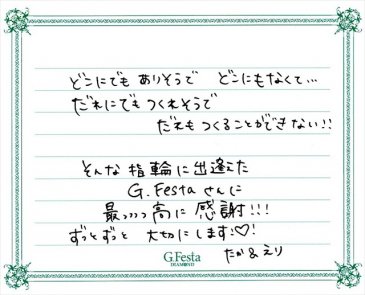 どこにでも ありそうで どこにもなくて…
だれにでも つくれそうで
だれも つくることができない!!
そんな 指輪に 出逢えた
G.Festa さんに
最っっっ高に 感謝!!!
ずっとずっと 大切にします♡!
たか & えり
G.Festa
DIAMOND